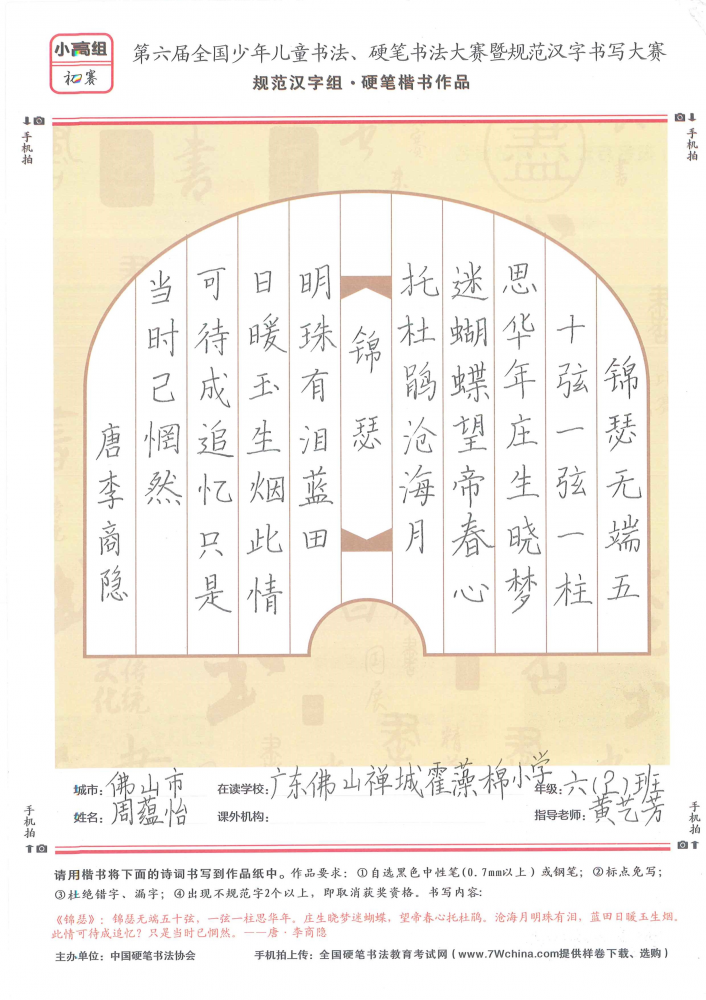 小高组
初赛
第六届全国少年儿童书法、硬笔书法大赛暨规范汉字书写大赛
规范汉字组·硬笔楷书作品
手机拍
手机拍
锦瑟无端五
十弦一弦一柱
思华年庄生晓梦
迷蝴蝶望帝春心
托杜鹃沧海月
锦瑟
明珠有泪蓝田
日暖玉生烟此情
可待成追忆只是
当时已惘然
唐李商隐
城市：佛山市
在读学校：广东佛山禅城霍藻棉小学
年级：六（2）班
姓名：周蕴怡
课外机构：
指导老师：黄艺芳
手机拍
手机拍
请用楷书将下面的诗词书写到作品纸中。作品要求：①自选黑色中性笔(0.7mm以上)或钢笔；②标点免写；
③杜绝错字、漏字；④出现不规范字2个以上，即取消获奖资格。书写内容：
《锦瑟》：锦瑟无端五十弦，一弦一柱思华年。庄生晓梦迷蝴蝶，望帝春心托杜鹃。沧海月明珠有泪，蓝田日暖玉生烟。
此情可待成追忆？只是当时已惘然。——唐·李商隐
主办单位：中国硬笔书法协会
手机拍上传：全国硬笔书法教育考试网（www.7Wchina.com提供样卷下载、选购）